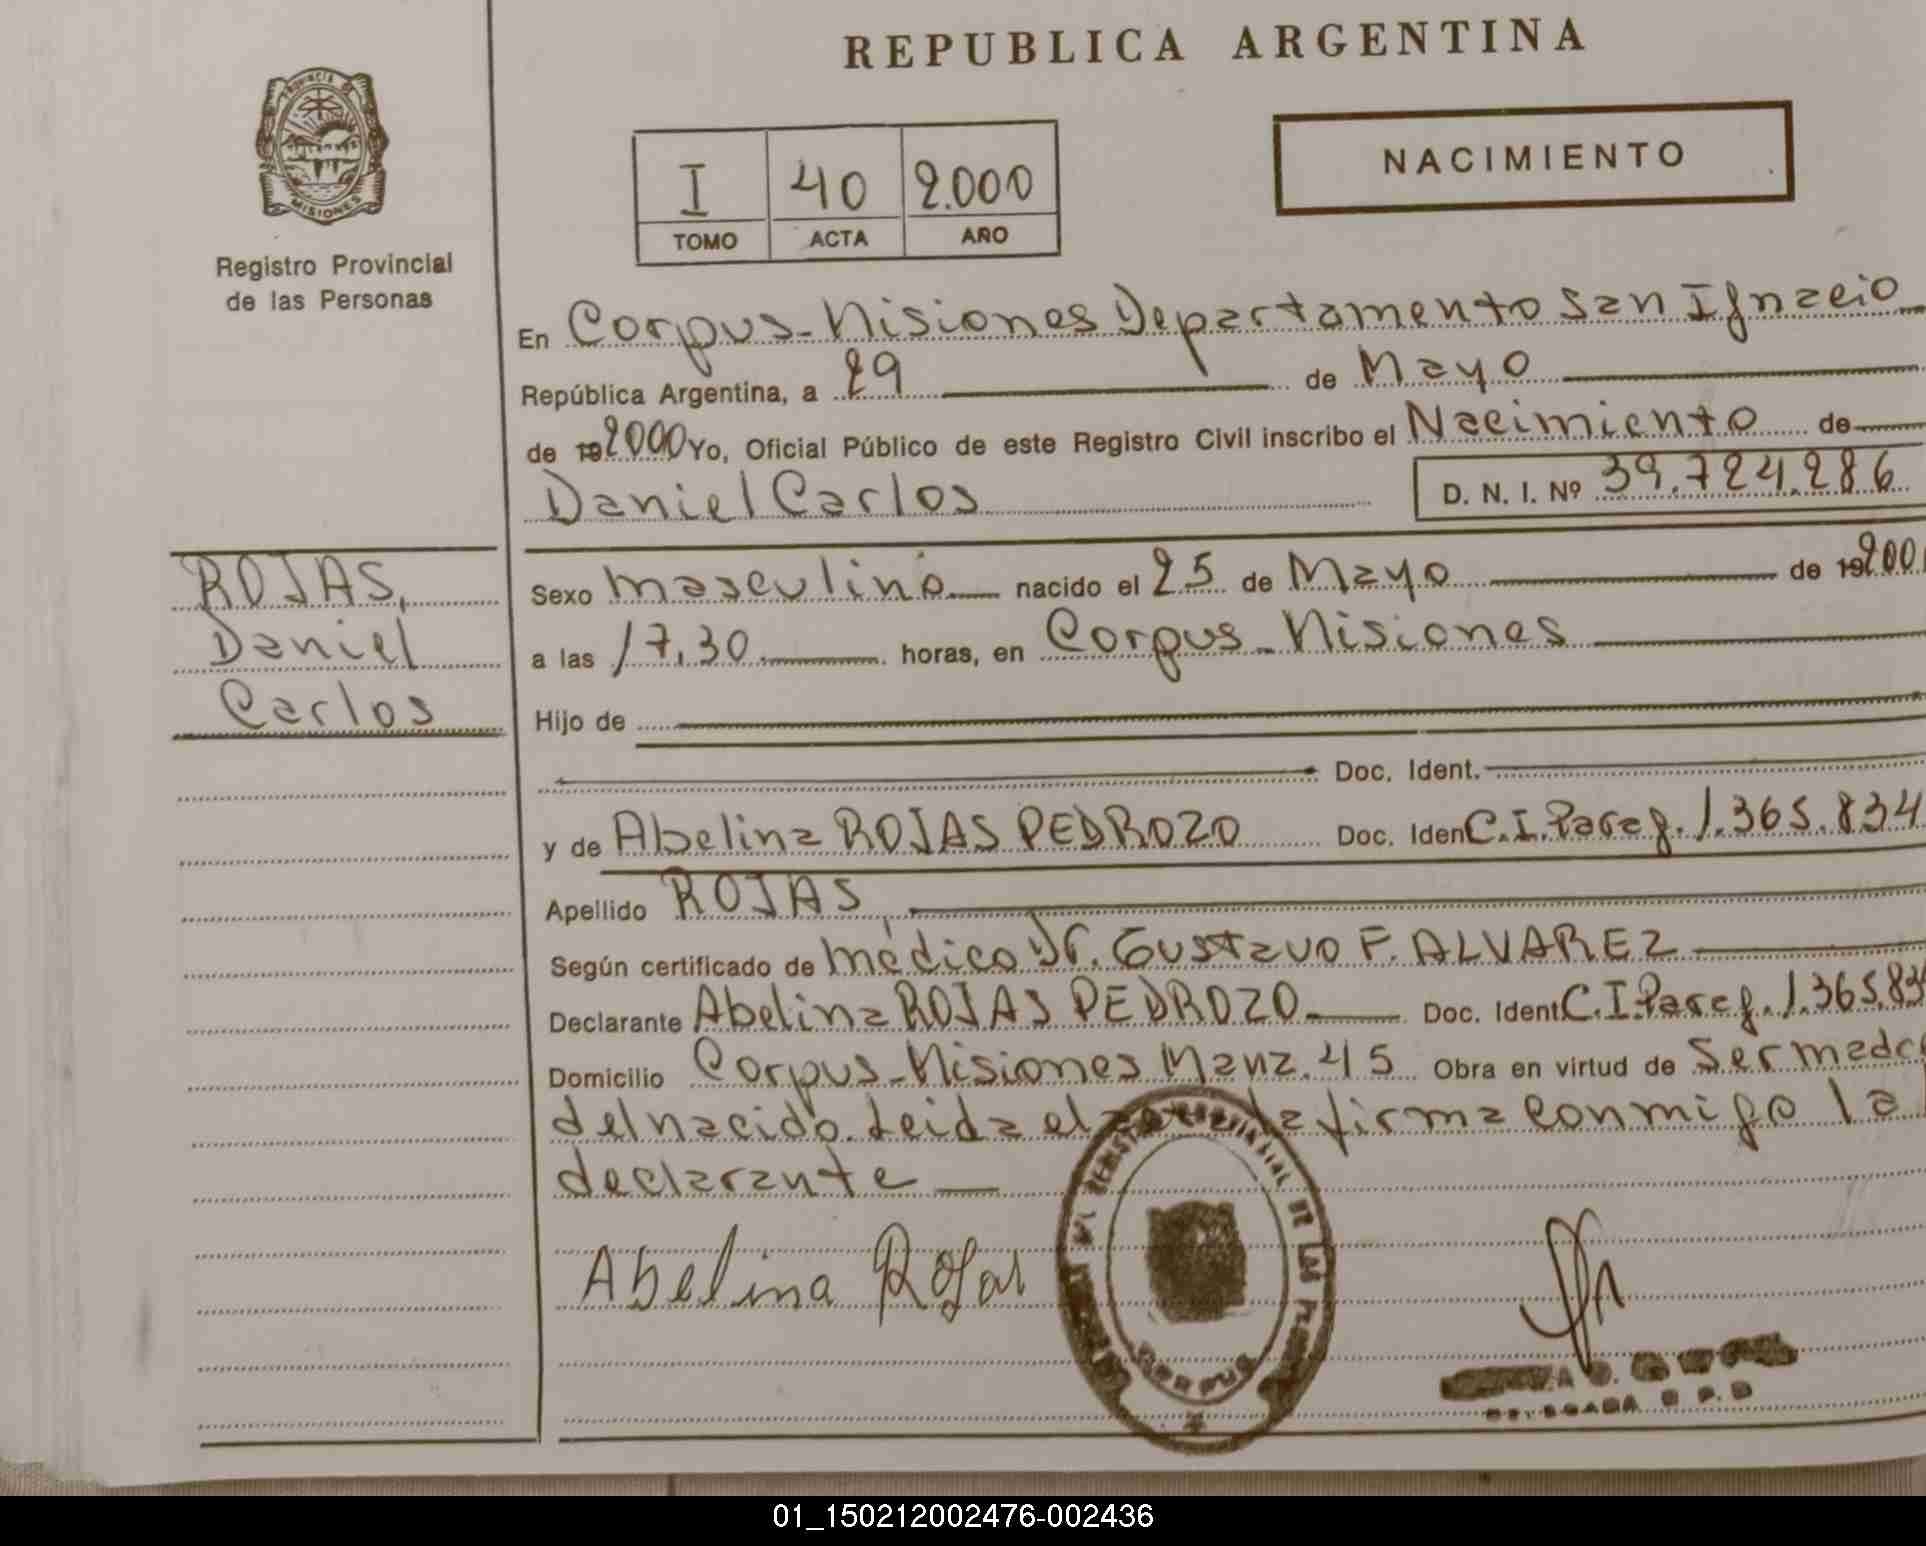 REPUBLICA ARGENTINA
PROVINCIA DE
MISIONES
Registro Provincial
de las Personas
I 40 2.000
TOMO ACTA AÑO
NACIMIENTO
En Corpus-Misiones Departamento San Ignacio
República Argentina, a 29 de Mayo
de 19 2000 Yo, Oficial Público de este Registro Civil inscribo el Nacimiento de
Daniel Carlos D. N. I. Nº 39.724.286
ROJAS,
Daniel
Carlos
Sexo masculino nacido el 25 de Mayo de 19 200
a las 17,30 horas, en Corpus-Misiones
Hijo de
Doc. Ident.
y de Abelina ROJAS PEDROZO Doc. Iden C.I.Parag. 1.365.834
Apellido ROJAS
Según certificado de médico Dr. Gustavo F. ALVAREZ
Declarante Abelina ROJAS PEDROZO Doc. Ident C.I.Parag. 1.365.83
Domicilio Corpus-Misiones Manz. 45 Obra en virtud de Ser madre
del nacido. Leida el la firma conmigo la
declarante
Abelina Rojas
DE LAS
CORPUS
01_150212002476-002436